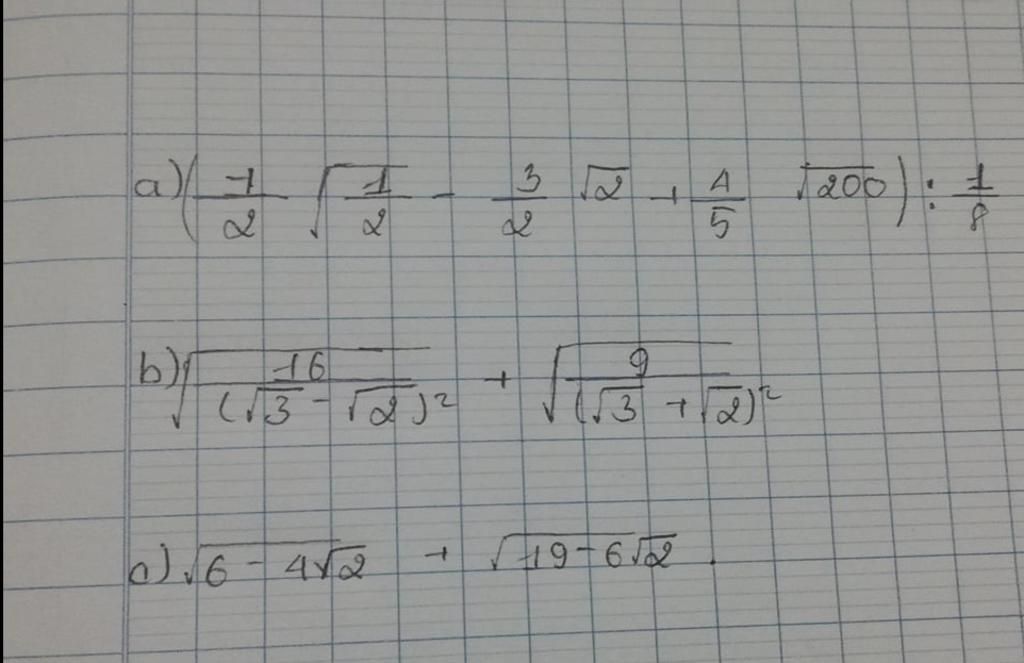 a) (1/2 √(1/2) - 3/2 √2 + 4/5 √200) : 1/8
b) √(16/(√3 - √2)²) + √(9/(√3 + √2)²)
c) √(6 - 4√2) + √(19 - 6√2) .